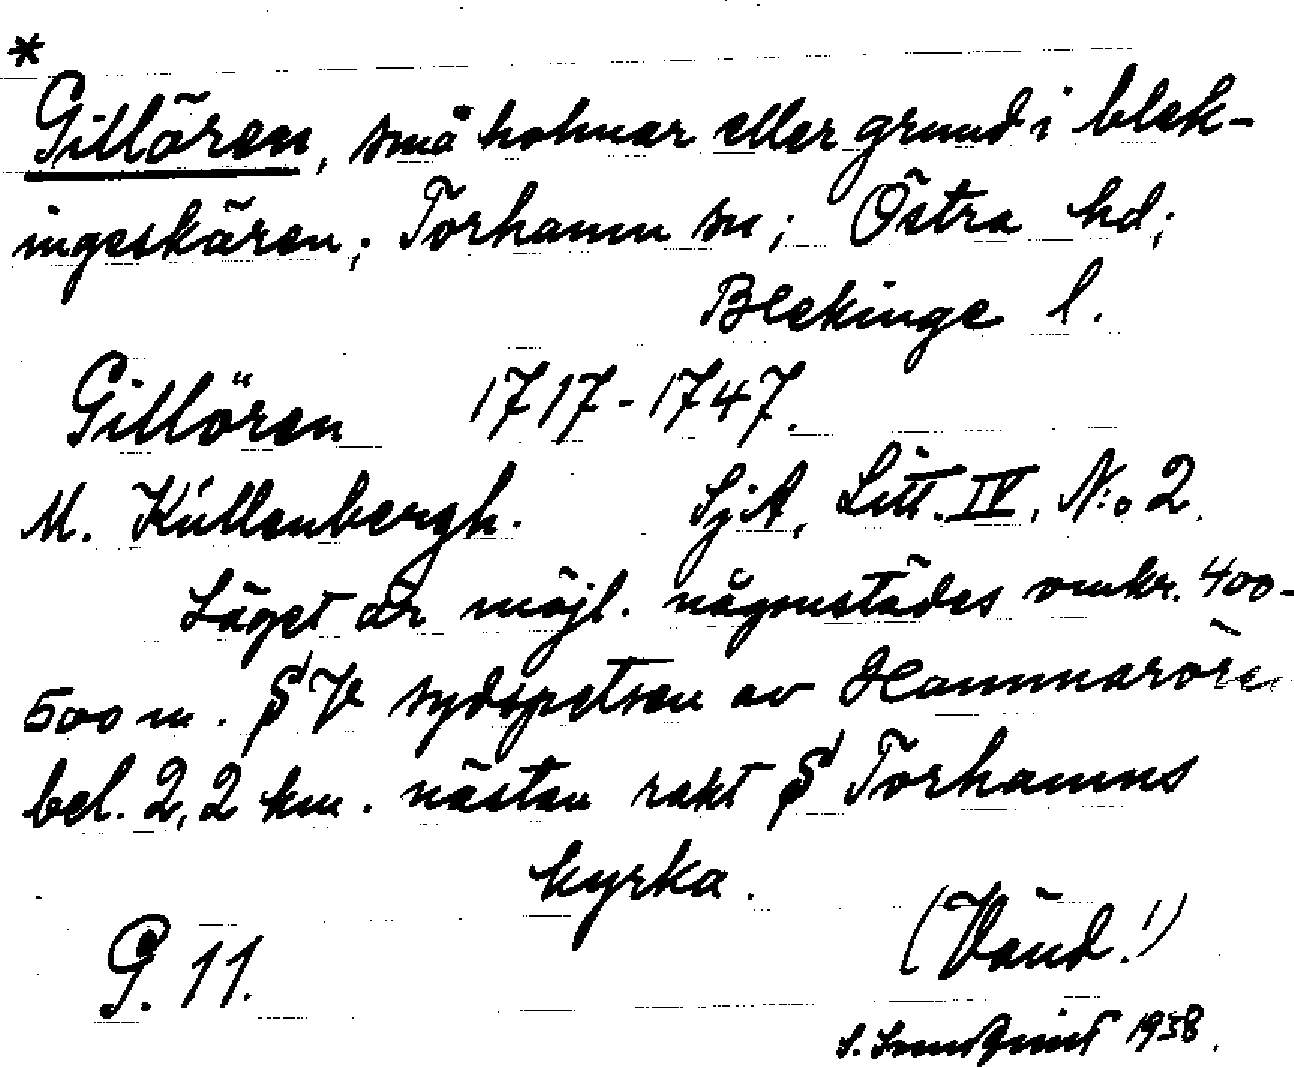 *
Gillören, små holmar eller grund i blek-
ingeskären; Torhamn sn; Östra hd;
Blekinge l.
Gillören 1717-1747.
M. Küllenbergh. SjA, Litt. IV, N:o 2.
Läget är möjl. någonstädes omkr. 400-
500 m. S V sydspetsen av Hammarören
bel. 2,2 km. nästan rakt S Torhamns
kyrka.
G. 11. (Vänd!)
S. Sundquist 1938.